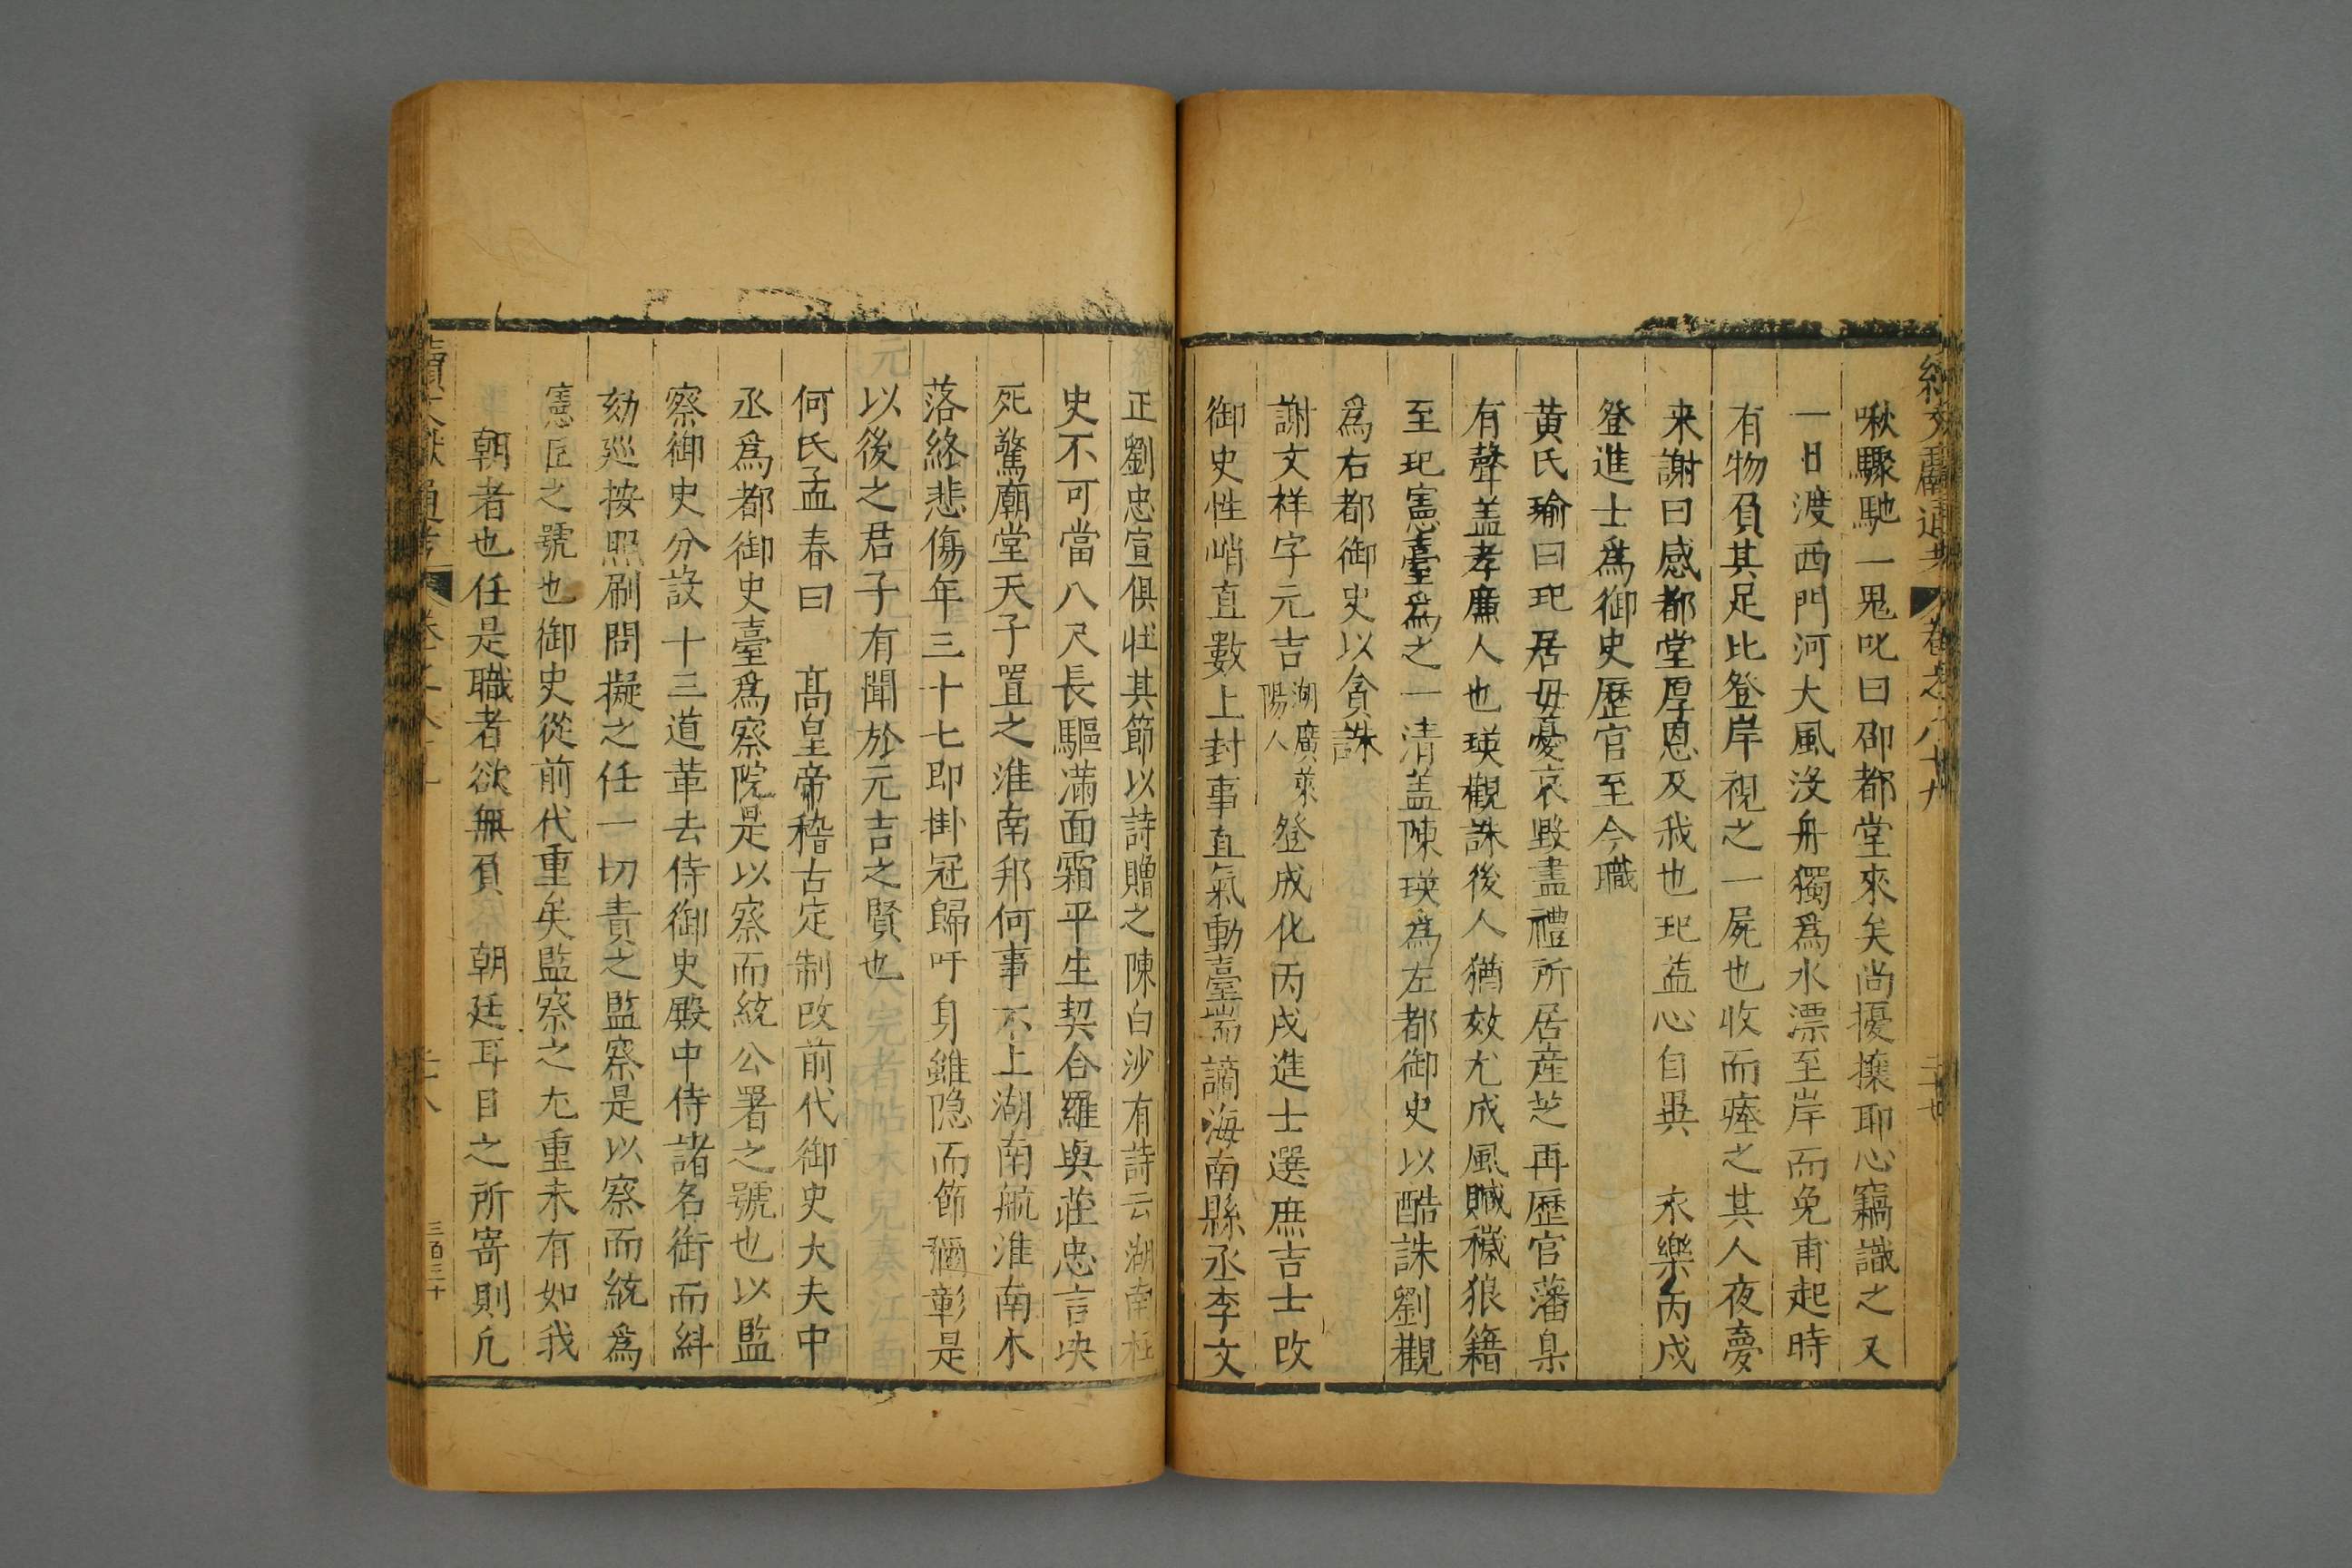 續文獻通考 卷之八十九
啾驟馳一鬼叱曰邵都堂來矣尚擾攘耶心竊識之又
一日渡西門河大風沒舟獨爲水漂至岸而免甫起時
有物負其足比登岸視之一屍也收而瘞之其人夜夢
来謝曰感都堂厚恩及我也玘葢心自異 永樂丙戍
登進士爲御史歷官至今職
黄氏瑜曰玘居毋憂哀毀盡禮所居産芝再歷官藩臬
有聲盖孝廉人也瑛觀誅後人猶效尤成風贓穢狼籍
至玘憲臺爲之一清盖陳瑛爲左都御史以酷誅劉觀
爲右都御史以貪誅
謝文祥字元吉湖廣萊陽人登成化丙戍進士選庶吉士改
御史性峭直數上封事直氣動臺端謫海南縣丞李文
正劉忠宣俱壮其節以詩贈之陳白沙有詩云湖南柱
史不可當八尺長驅滿面霜平生契合羅與莊忠言决
死驚廟堂天子置之淮南邦何事不上湖南航淮南木
落終悲傷年三十七即掛冠歸吁身雖隐而節彌彰是
以後之君子有聞於元吉之賢也
何氏孟春曰 髙皇帝稽古定制改前代御史大夫中
丞爲都御史臺爲察院是以察而統公署之號也以監
察御史分設十三道革去侍御史殿中侍諸名銜而糾
劾廵按照刷問擬之任一切責之監察是以察而統爲
憲臣之號也御史從前代重矣監察之尤重未有如我
朝者也任是職者欲無負 朝廷耳目之所寄則凡
續文獻通考
三百三十